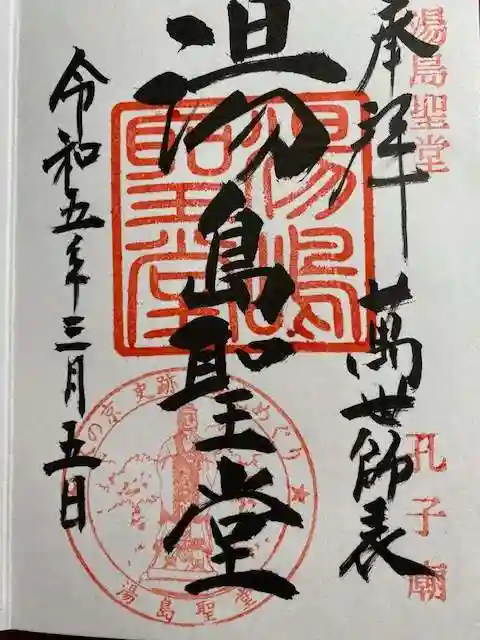 湯島聖堂
奉拝
萬世師表
孔子廟
湯島聖堂
湯島聖堂
令和五年三月五日
史跡
めぐり
湯島聖堂